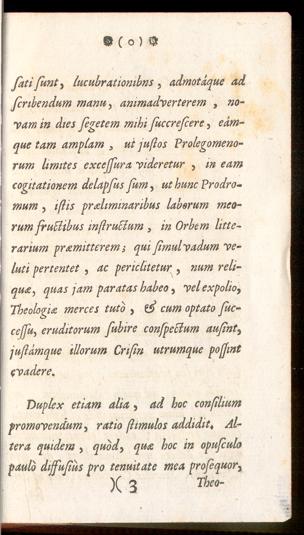 (o)
sati sunt, lucubrationibns, admotáque ad
scribendum manu, animadverterem, no-
vam in dies segetem mihi succrescere, eám-
que tam amplam, ut justos Prolegomeno-
rum limites excessura videretur, in eam
cogitationem delapsus sum, ut hunc Prodro-
mum, istis præliminaribus laborum meo-
rum fructibus instructum, in Orbem litte-
rarium præmitterem; qui simul vadum ve-
luti pertentet, ac periclitetur, num reli-
quæ, quas jam paratas habeo, vel expolio,
Theologiæ merces tutò, & cum optato suc-
cessu, eruditorum subire conspectum ausint,
justámque illorum Crisin utrumque possint
evadere.
Duplex etiam alia, ad hoc consilium
promovendum, ratio stimulos addidit. Al-
tera quidem, quòd, quæ hoc in opusculo
paulò diffusiùs pro tenuitate mea prosequor,
)( 3 Theo-